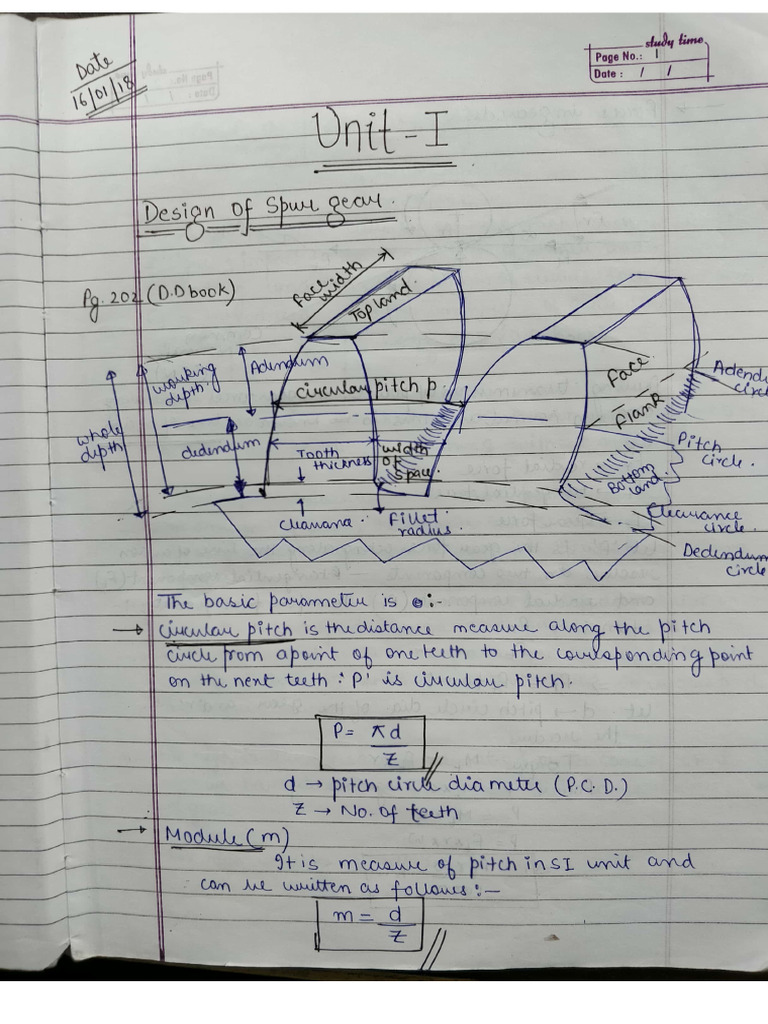 Date
16/01/18
study time
Page No.: 1
Date : / /
Unit-I
Design of Spur gear.
Pg. 202 (D.D book)
Face width
Top land.
Adendum
working depth.
whole depth
circular pitch p.
dedendum
Tooth thickness
width of space.
clearance.
Fillet radius.
Face
Flank
Bottom land.
Adendu
circ
Pitch circle.
Clearance circle.
Dedendum
circle
The basic parameter is :-
→ circular pitch is the distance measure along the pitch
circle from a point of one teeth to the corresponding point
on the next teeth 'P' is circular pitch.
P = πd
Z
d → pitch circle diameter (P.C.D.)
Z → No. of teeth
→ Module (m)
It is measure of pitch in SI unit and
can be written as follows :-
m = d
Z